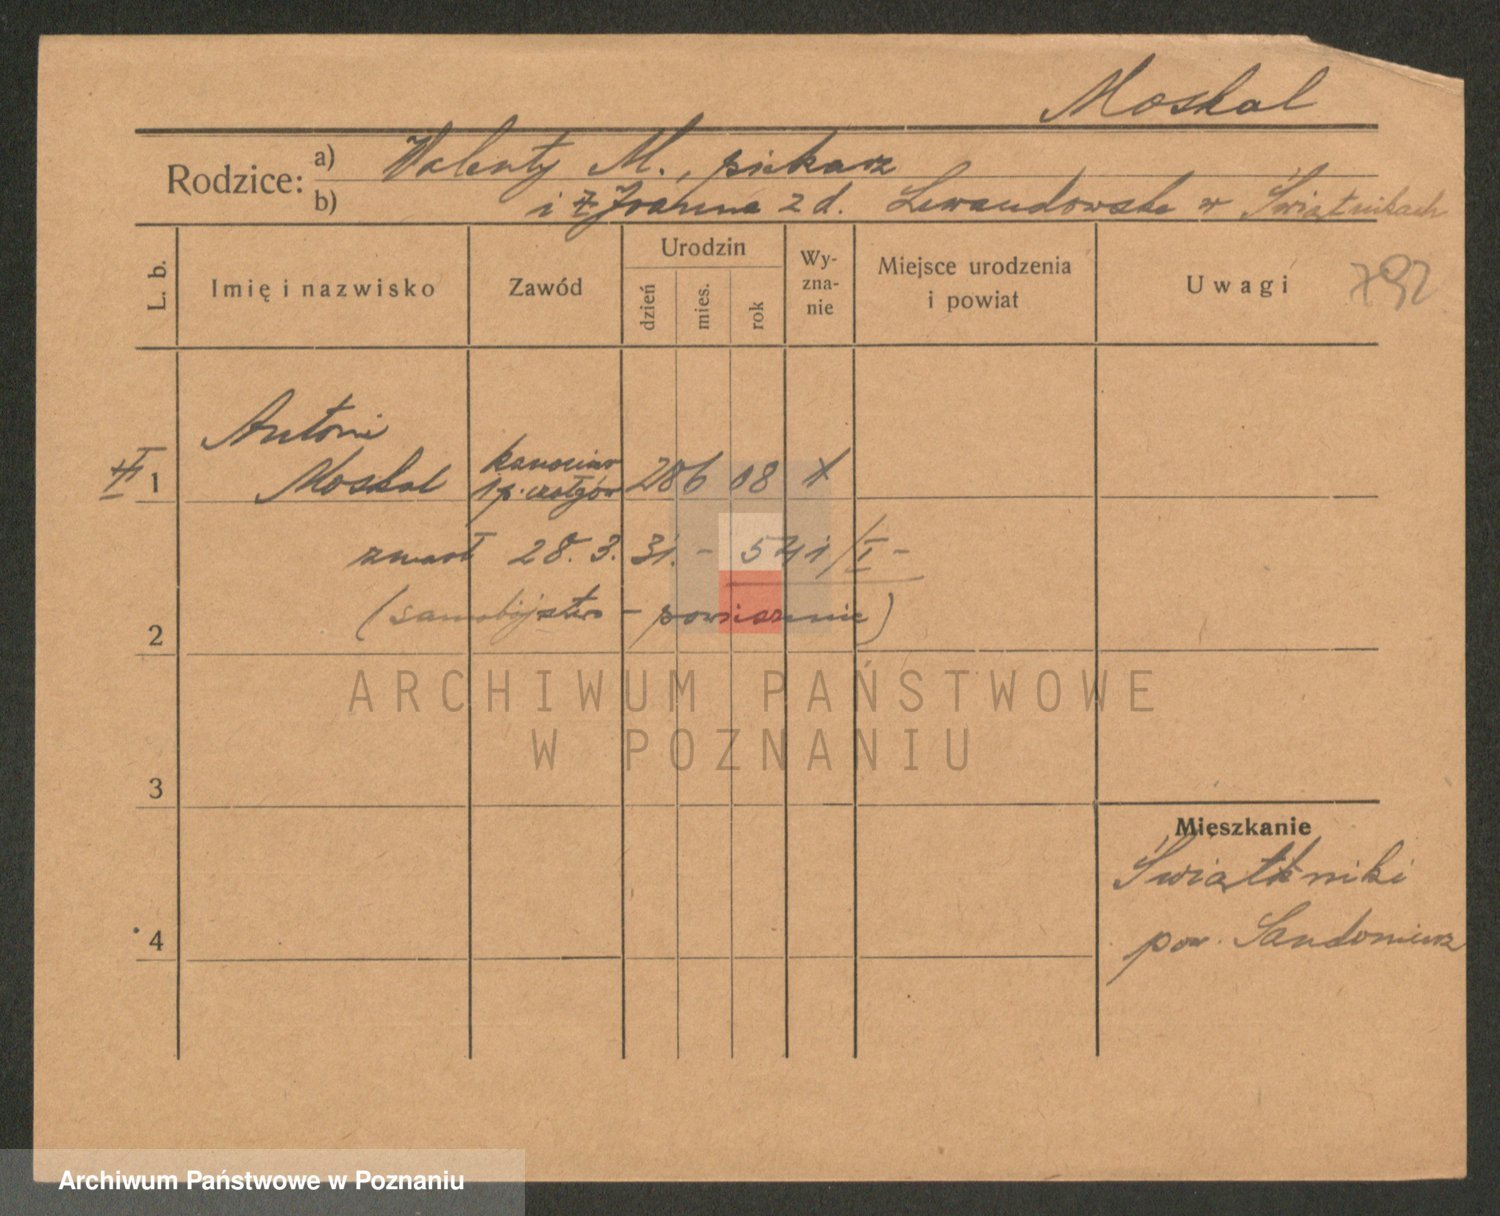 Moskal
Rodzice: a) Walenty M., piekarz
b) i Joanna z d. Lewandowska w Świątnikach
L. b.
Imię i nazwisko
Zawód
Urodzin
dzień
mies.
rok
Wy-
zna-
nie
Miejsce urodzenia
i powiat
Uwagi
792
Antoni
1 Moskal
kanonier
1 p. czołgów
28 6 08
zmarł 28. 3. 31. - 541/I -
(samobójstwo - powieszenie)
2
3
4
Mieszkanie
Świątniki
pow. Sandomierz
ARCHIWUM PAŃSTWOWE
W POZNANIU
Archiwum Państwowe w Poznaniu